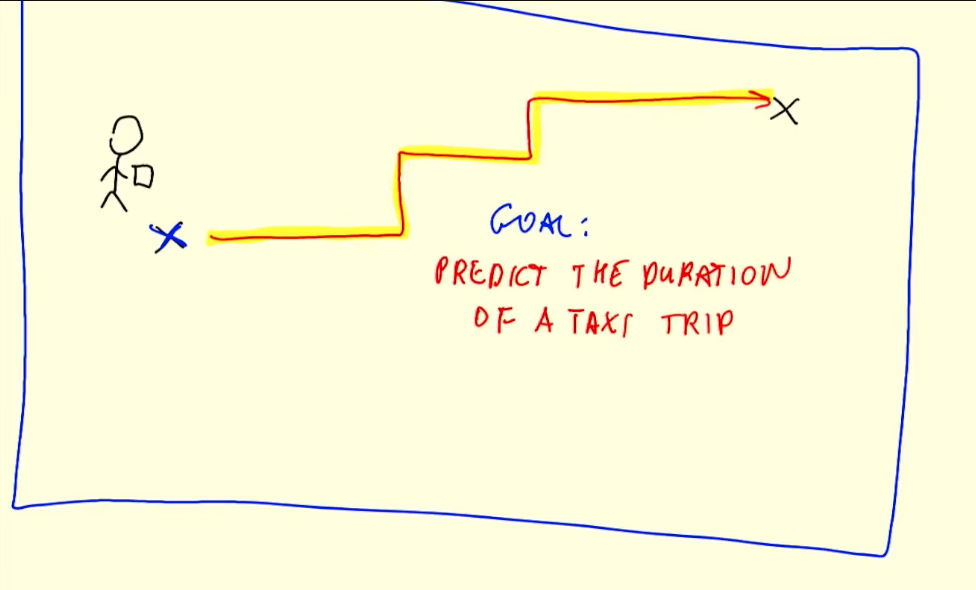 GOAL:
PREDICT THE DURATION
OF A TAXI TRIP